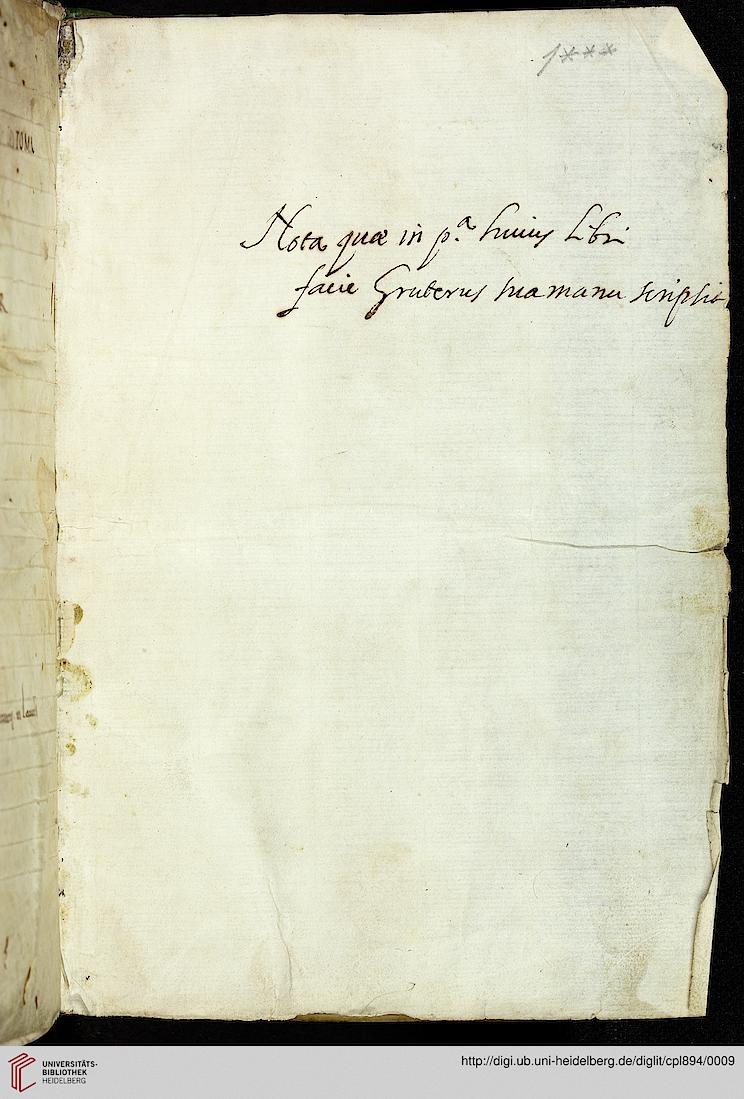 1***
Nota quæ in p.ª huius libri
facie Gruterus sua manu scripsit
UNIVERSITÄTS-
BIBLIOTHEK
HEIDELBERG
http://digi.ub.uni-heidelberg.de/diglit/cpl894/0009